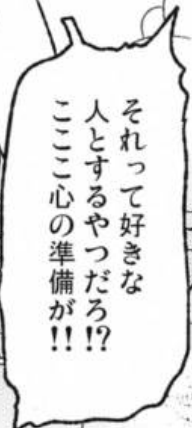 それって好きな
人とするやつだろ!?
こここ心の準備が!!